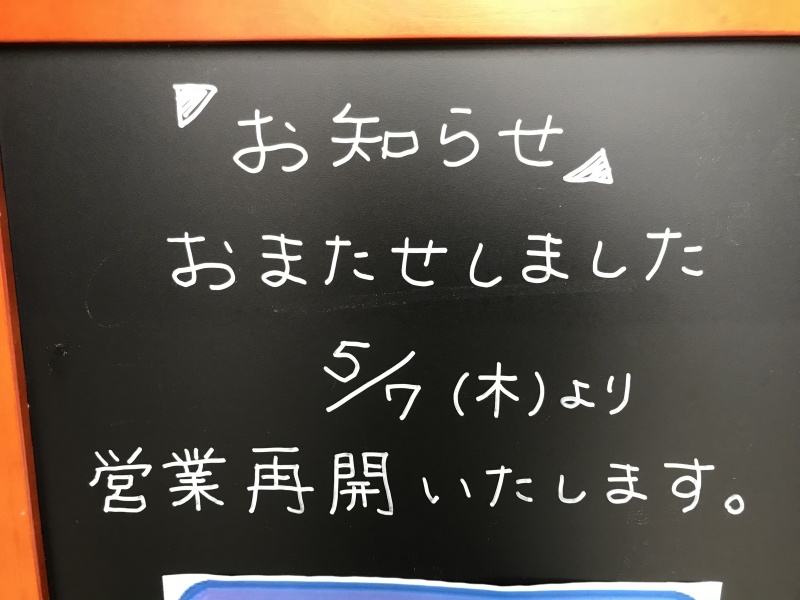 お知らせ
おまたせしました
5/7(木)より
営業再開いたします。